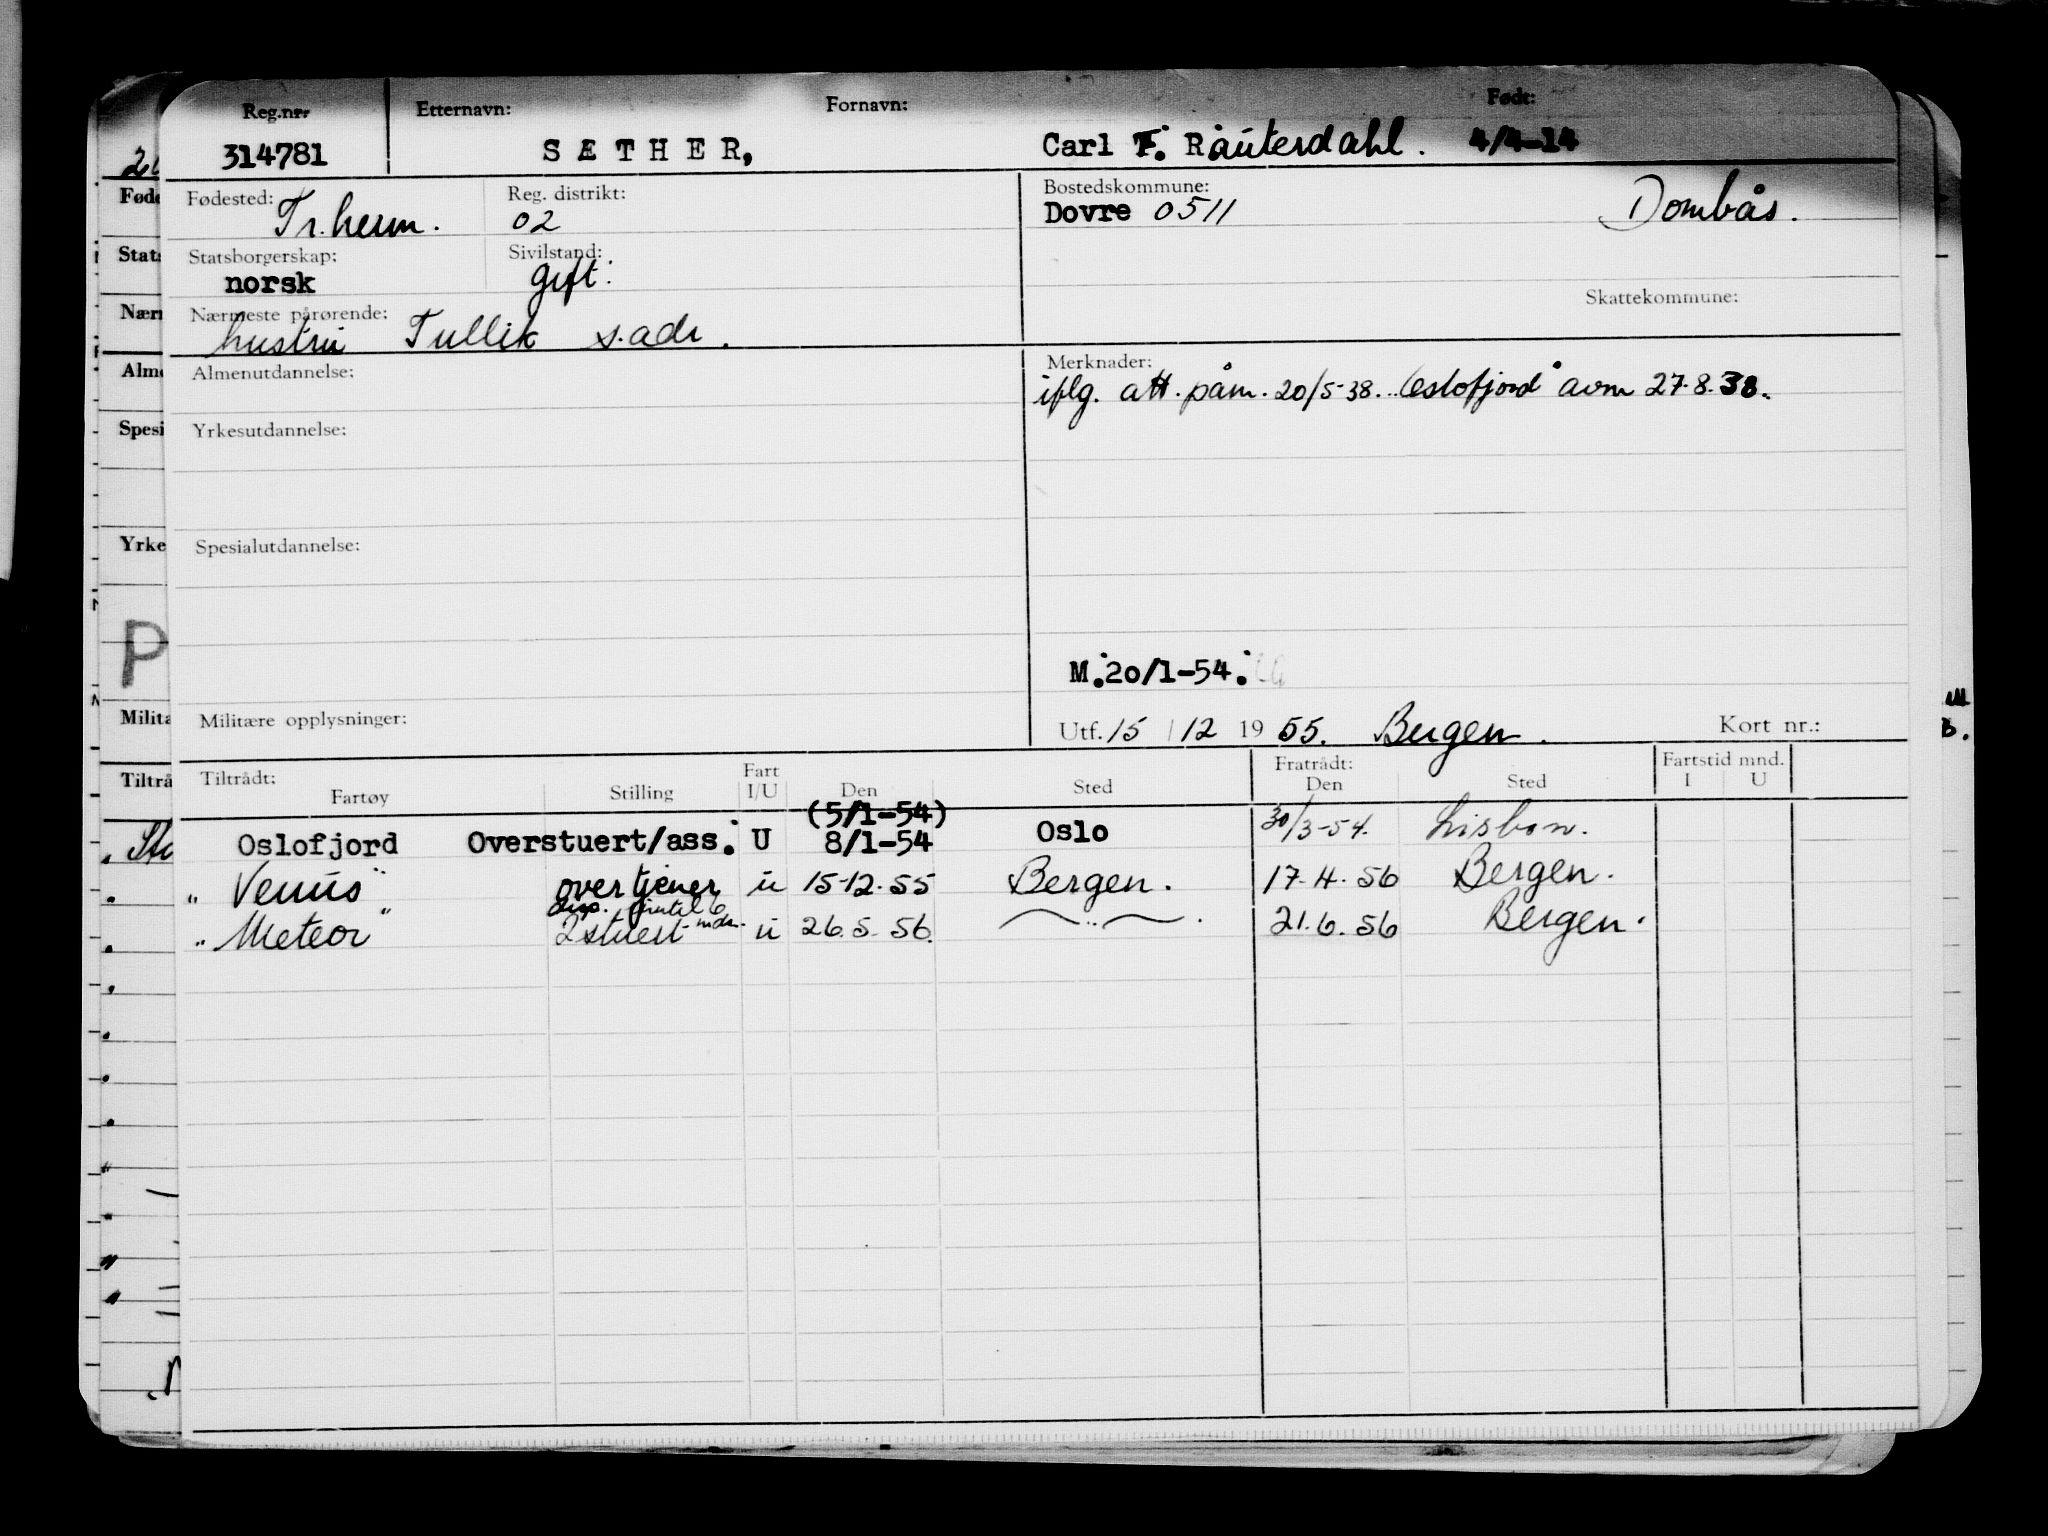 Reg.nr. Etternavn: Fornavn: Født:
314781 SÆTHER, Carl F. Rauterdahl. 4/4-14
Fødested: Tr.heim. Reg. distrikt: 02 Bostedskommune: Dovre 0511 Dombås.
Statsborgerskap: norsk Sivilstand: gift.
Skattekommune:
Nærmeste pårørende: hustru Tullik s.adr.
Almenutdannelse: Merknader:
iflg. att. påm. 20/5-38. "Oslofjord" avm 27.8.38.
Yrkesutdannelse:
Spesialutdannelse:
M.20/1-54.
Militære opplysninger: Utf. 15/12 1955. Bergen. Kort nr.:
Tiltrådt: Fart Fratrådt: Fartstid mnd.
Fartøy Stilling I/U Den Sted Den Sted I U
(5/1-54)
Oslofjord Overstuert/ass. U 8/1-54 Oslo 30/3-54. Lisbon.
"Venus" overtjener u 15-12-55 Bergen. 17.4.56 Bergen.
disp. inntil 6 mdr.
"Meteor" 2 stuert u 26.5.56. 〜 " 〜. 21.6.56 Bergen.
Føde
Stats
Nærm
Alme
Spesi
Yrke
P
Milita
Tiltrå